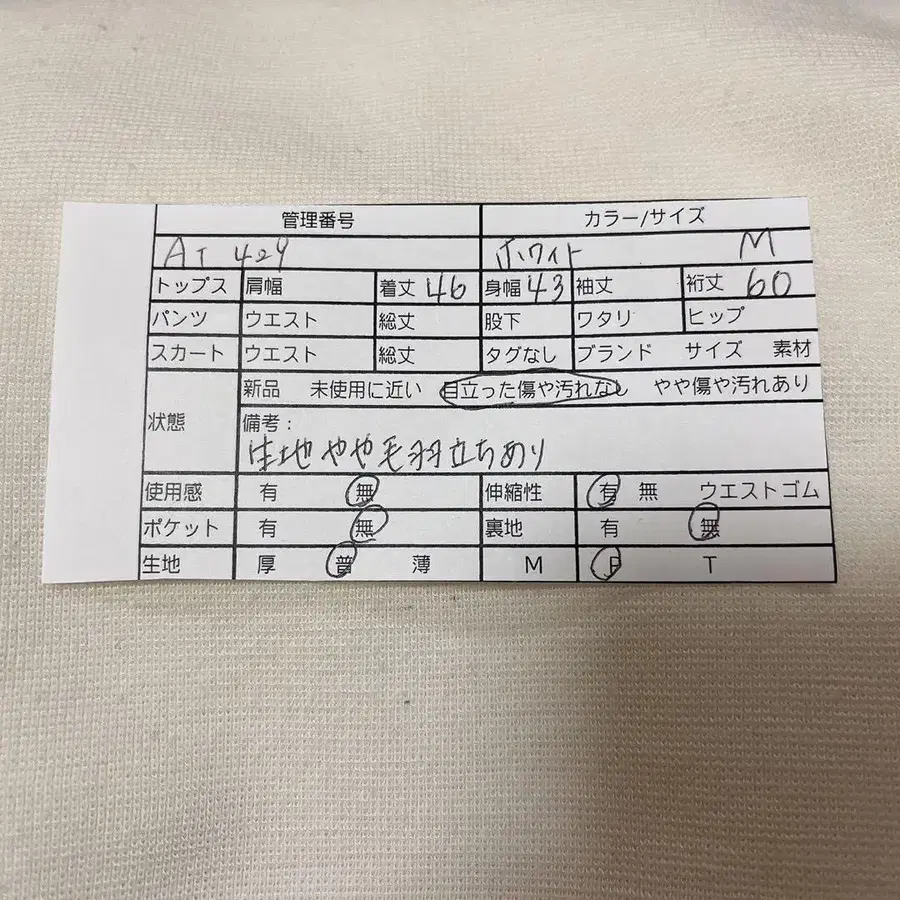 管理番号 カラー/サイズ
AT 429 ホワイト M
トップス 肩幅 着丈 46 身幅 43 袖丈 裄丈 60
パンツ ウエスト 総丈 股下 ワタリ ヒップ
スカート ウエスト 総丈 タグなし ブランド サイズ 素材
状態 新品 未使用に近い 目立った傷や汚れなし やや傷や汚れあり
備考:
生地やや毛羽立ちあり
使用感 有 無 伸縮性 有 無 ウエストゴム
ポケット 有 無 裏地 有 無
生地 厚 普 薄 M P T